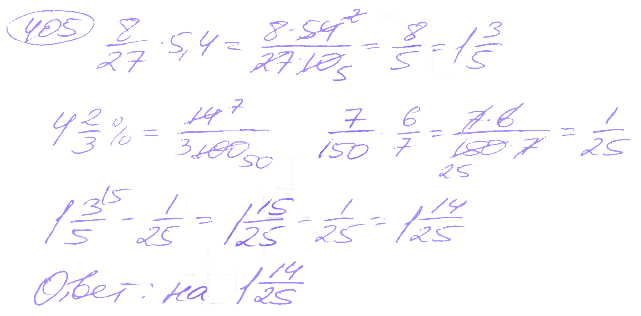 405 8/27 · 5,4 = 8·54²/27·10₅ = 8/5 = 1 3/5
4 2/3 % = 14⁷/3·100₅₀ 7/150 · 6/7 = 7·6/150·7 ₂₅ = 1/25
1 3/5¹⁵ − 1/25 = 1 15/25 − 1/25 = 1 14/25
Ответ: на 1 14/25